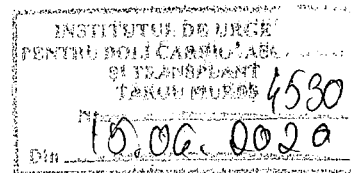 INSTITUTUL DE URGE
PENTRU BOLI CARDIO
ȘI TRANSPLANT
TÂRGU MUREȘ
Nr. 4530
Din 15.06.2020